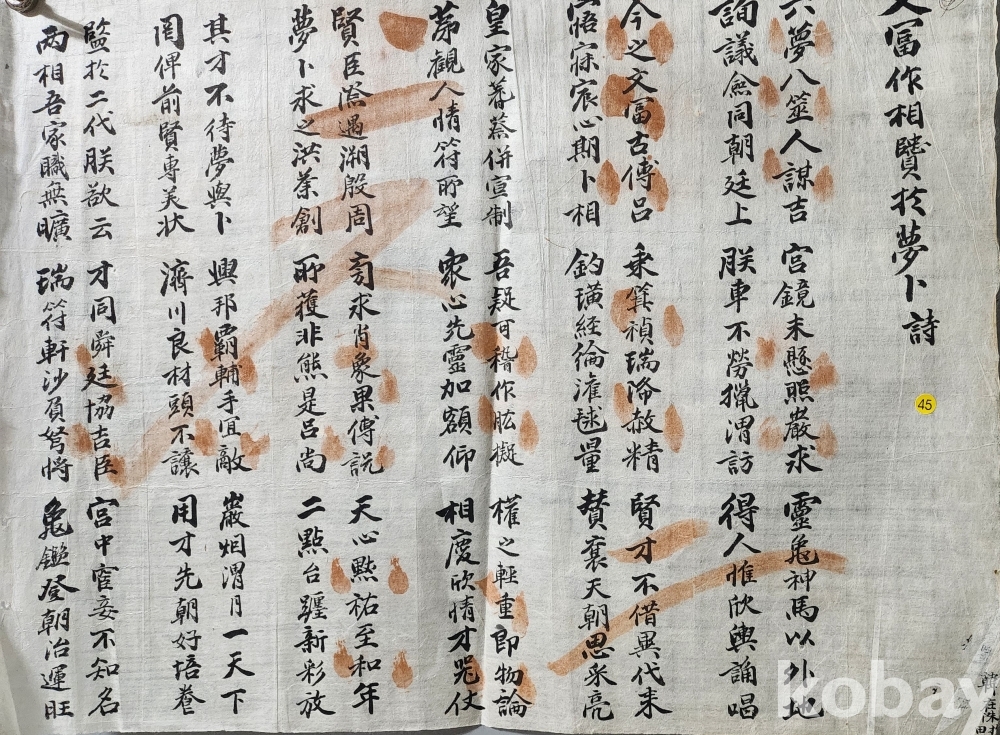 文富作相賢於夢卜詩
六夢八筮人謀吉 宮鏡未懸照巖求 靈龜神馬以外地
詢議僉同朝廷上 朕車不勞獵渭訪 得人惟欣輿誦唱
今之文富古傅呂 乘箕禎瑞降赦精 賢才不借異代來
寤寐宸心期卜相 釣璜經綸濟量 贊襄天朝思采亮
皇家蓍蔡併宣制 吾疑可稽作肱擬 權之輕重即物論
第觀人情符所望 衆心先靈加額仰 相慶欣情才仗
賢臣添遇溯殷周 旁求肖象果傅説 天心點祐至和年
夢卜求之洪荼創 所獲非熊是呂尚 二點台躔新彩放
其才不待夢與卜 興邦霸輔手宜敵 巖烟渭月一天下
罔俾前賢專美状 濟川良材頭不讓 用才先朝好培養
監於二代朕欲云 才同舜廷協吉臣 宮中宦妾不知名
兩相吾家職無曠 瑞符軒沙負弩將 龜鑑登朝治運旺
45
kobay